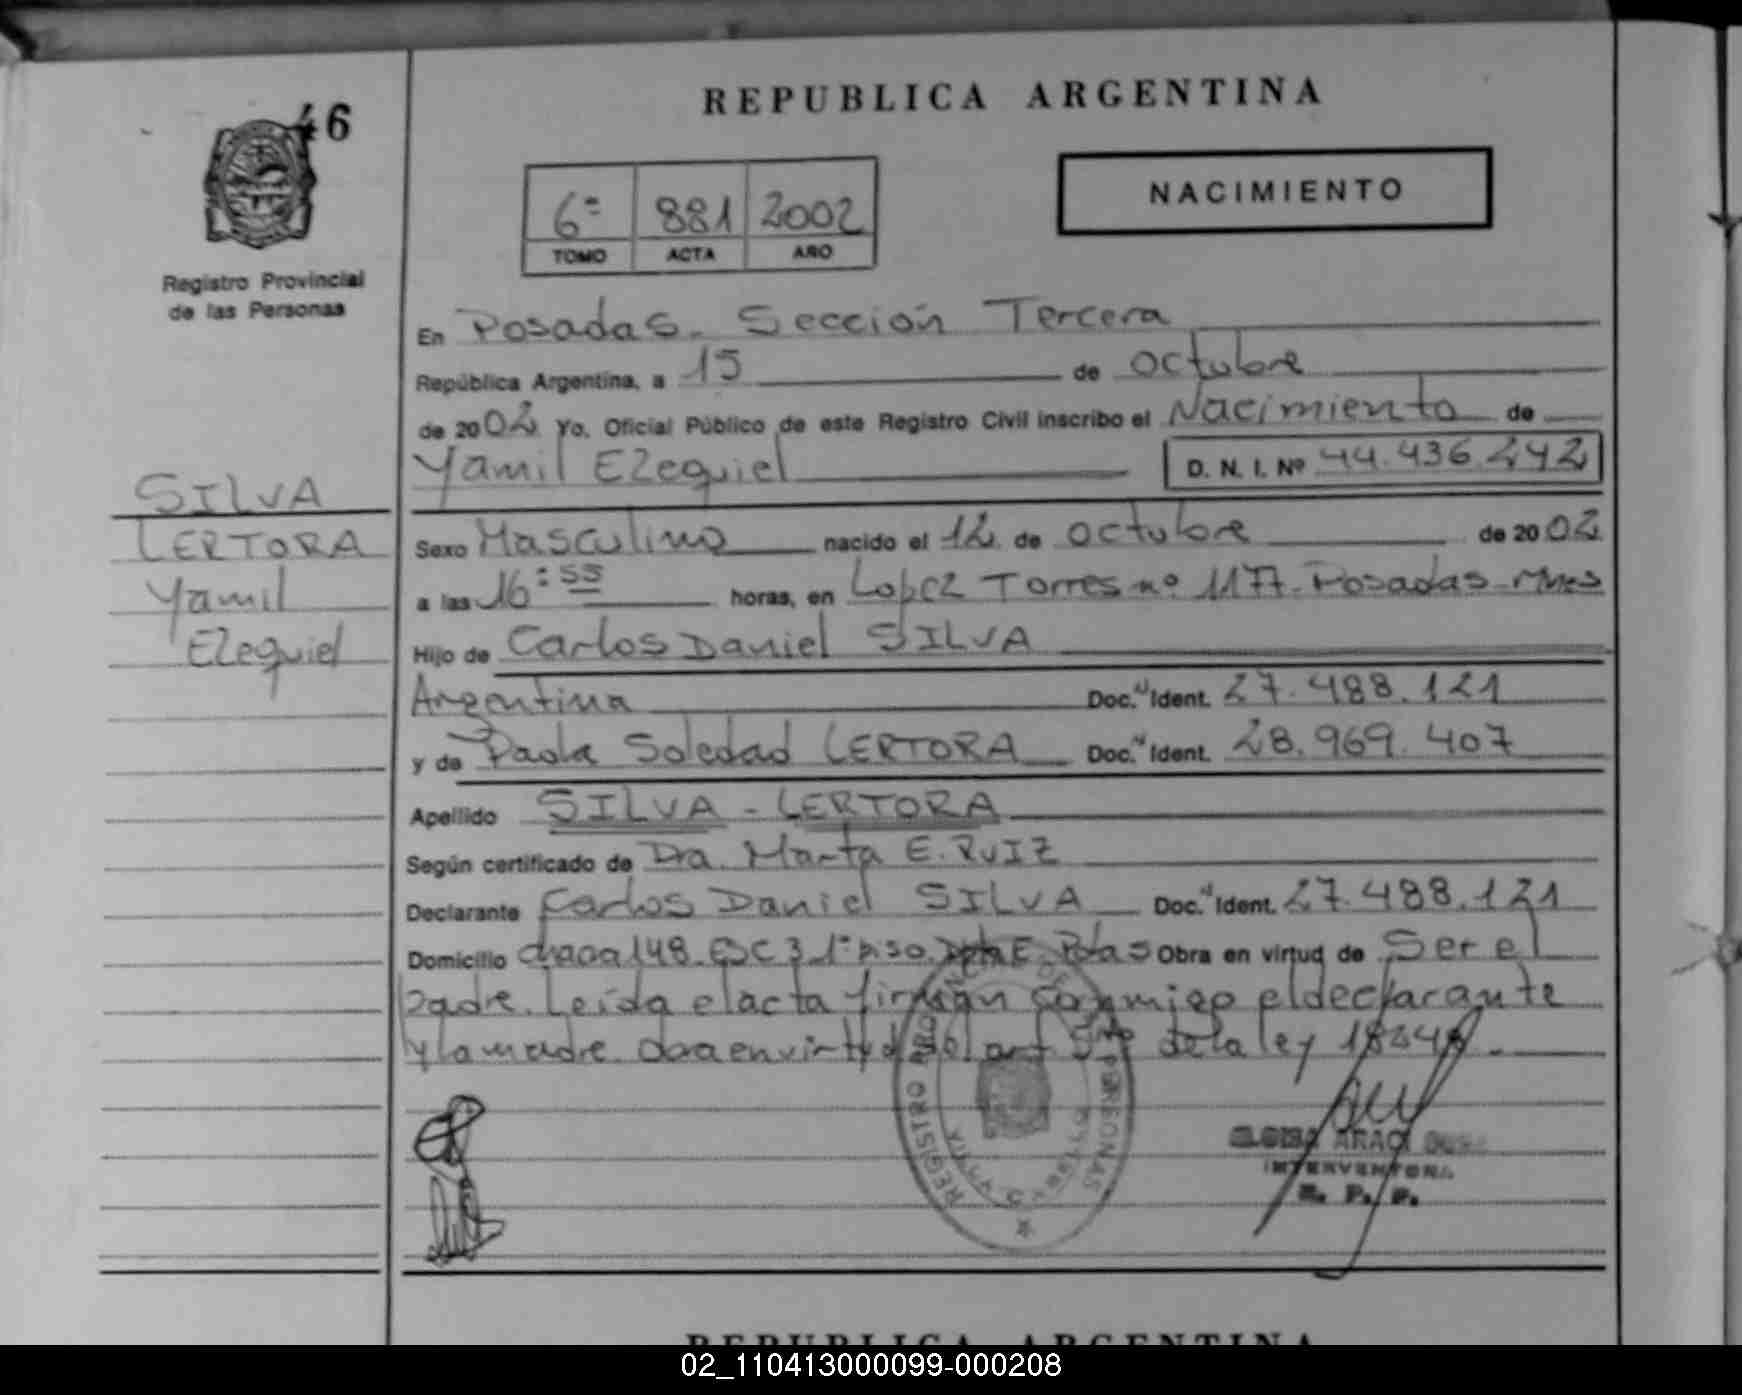 46
REPUBLICA ARGENTINA
6ª 881 2002
TOMO ACTA AÑO
NACIMIENTO
Registro Provincial
de las Personas
En Posadas. Sección Tercera
República Argentina, a 15 de octubre
de 2002 Yo. Oficial Público de este Registro Civil inscribo el Nacimiento de
Yamil Ezequiel D. N. I. Nº 44.436.242
SILVA
LERTORA
Yamil
Ezequiel
Sexo Masculino nacido el 12 de octubre de 2002
a las 16:55 horas, en Lopez Torres nº 1177. Posadas. Mnes
Hijo de Carlos Daniel SILVA
Argentina Doc. Ident. 27.488.121
y de Paola Soledad LERTORA Doc. Ident. 28.969.407
Apellido SILVA - LERTORA
Según certificado de Dra. Marta E. RUIZ
Declarante Carlos Daniel SILVA Doc. Ident. 27.488.121
Domicilio chacra 148. ESC 3 1º piso. Dpto E. Pdas Obra en virtud de Ser el
padre. Leída el acta firman conmigo el declarante
y la madre. Obra en virtud del art 5to de la ley 18248.
REGISTRO PROV. DE LAS PERSONAS
INTERVENTORA
R. P. P.
REPUBLICA ARGENTINA
02_110413000099-000208